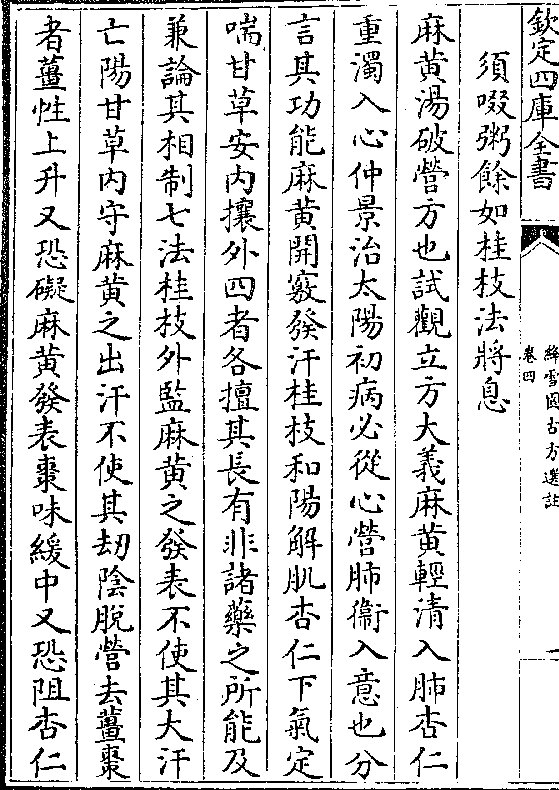 欽定四庫全書
絳雪園古方選註
卷四
一
須啜粥餘如桂枝法將息
麻黄湯破營方也試觀立方大義麻黄輕清入肺杏仁
重濁入心仲景治太陽初病必從心營肺衞入意也分
言其功能麻黄開竅發汗桂枝和陽解肌杏仁下氣定
喘甘草安内攘外四者各擅其長有非諸藥之所能及
兼論其相制七法桂枝外監麻黄之發表不使其大汗
亡陽甘草内守麻黄之出汗不使其刼陰脱營去薑棗
者薑性上升又恐礙麻黄發表棗味緩中又恐阻杏仁